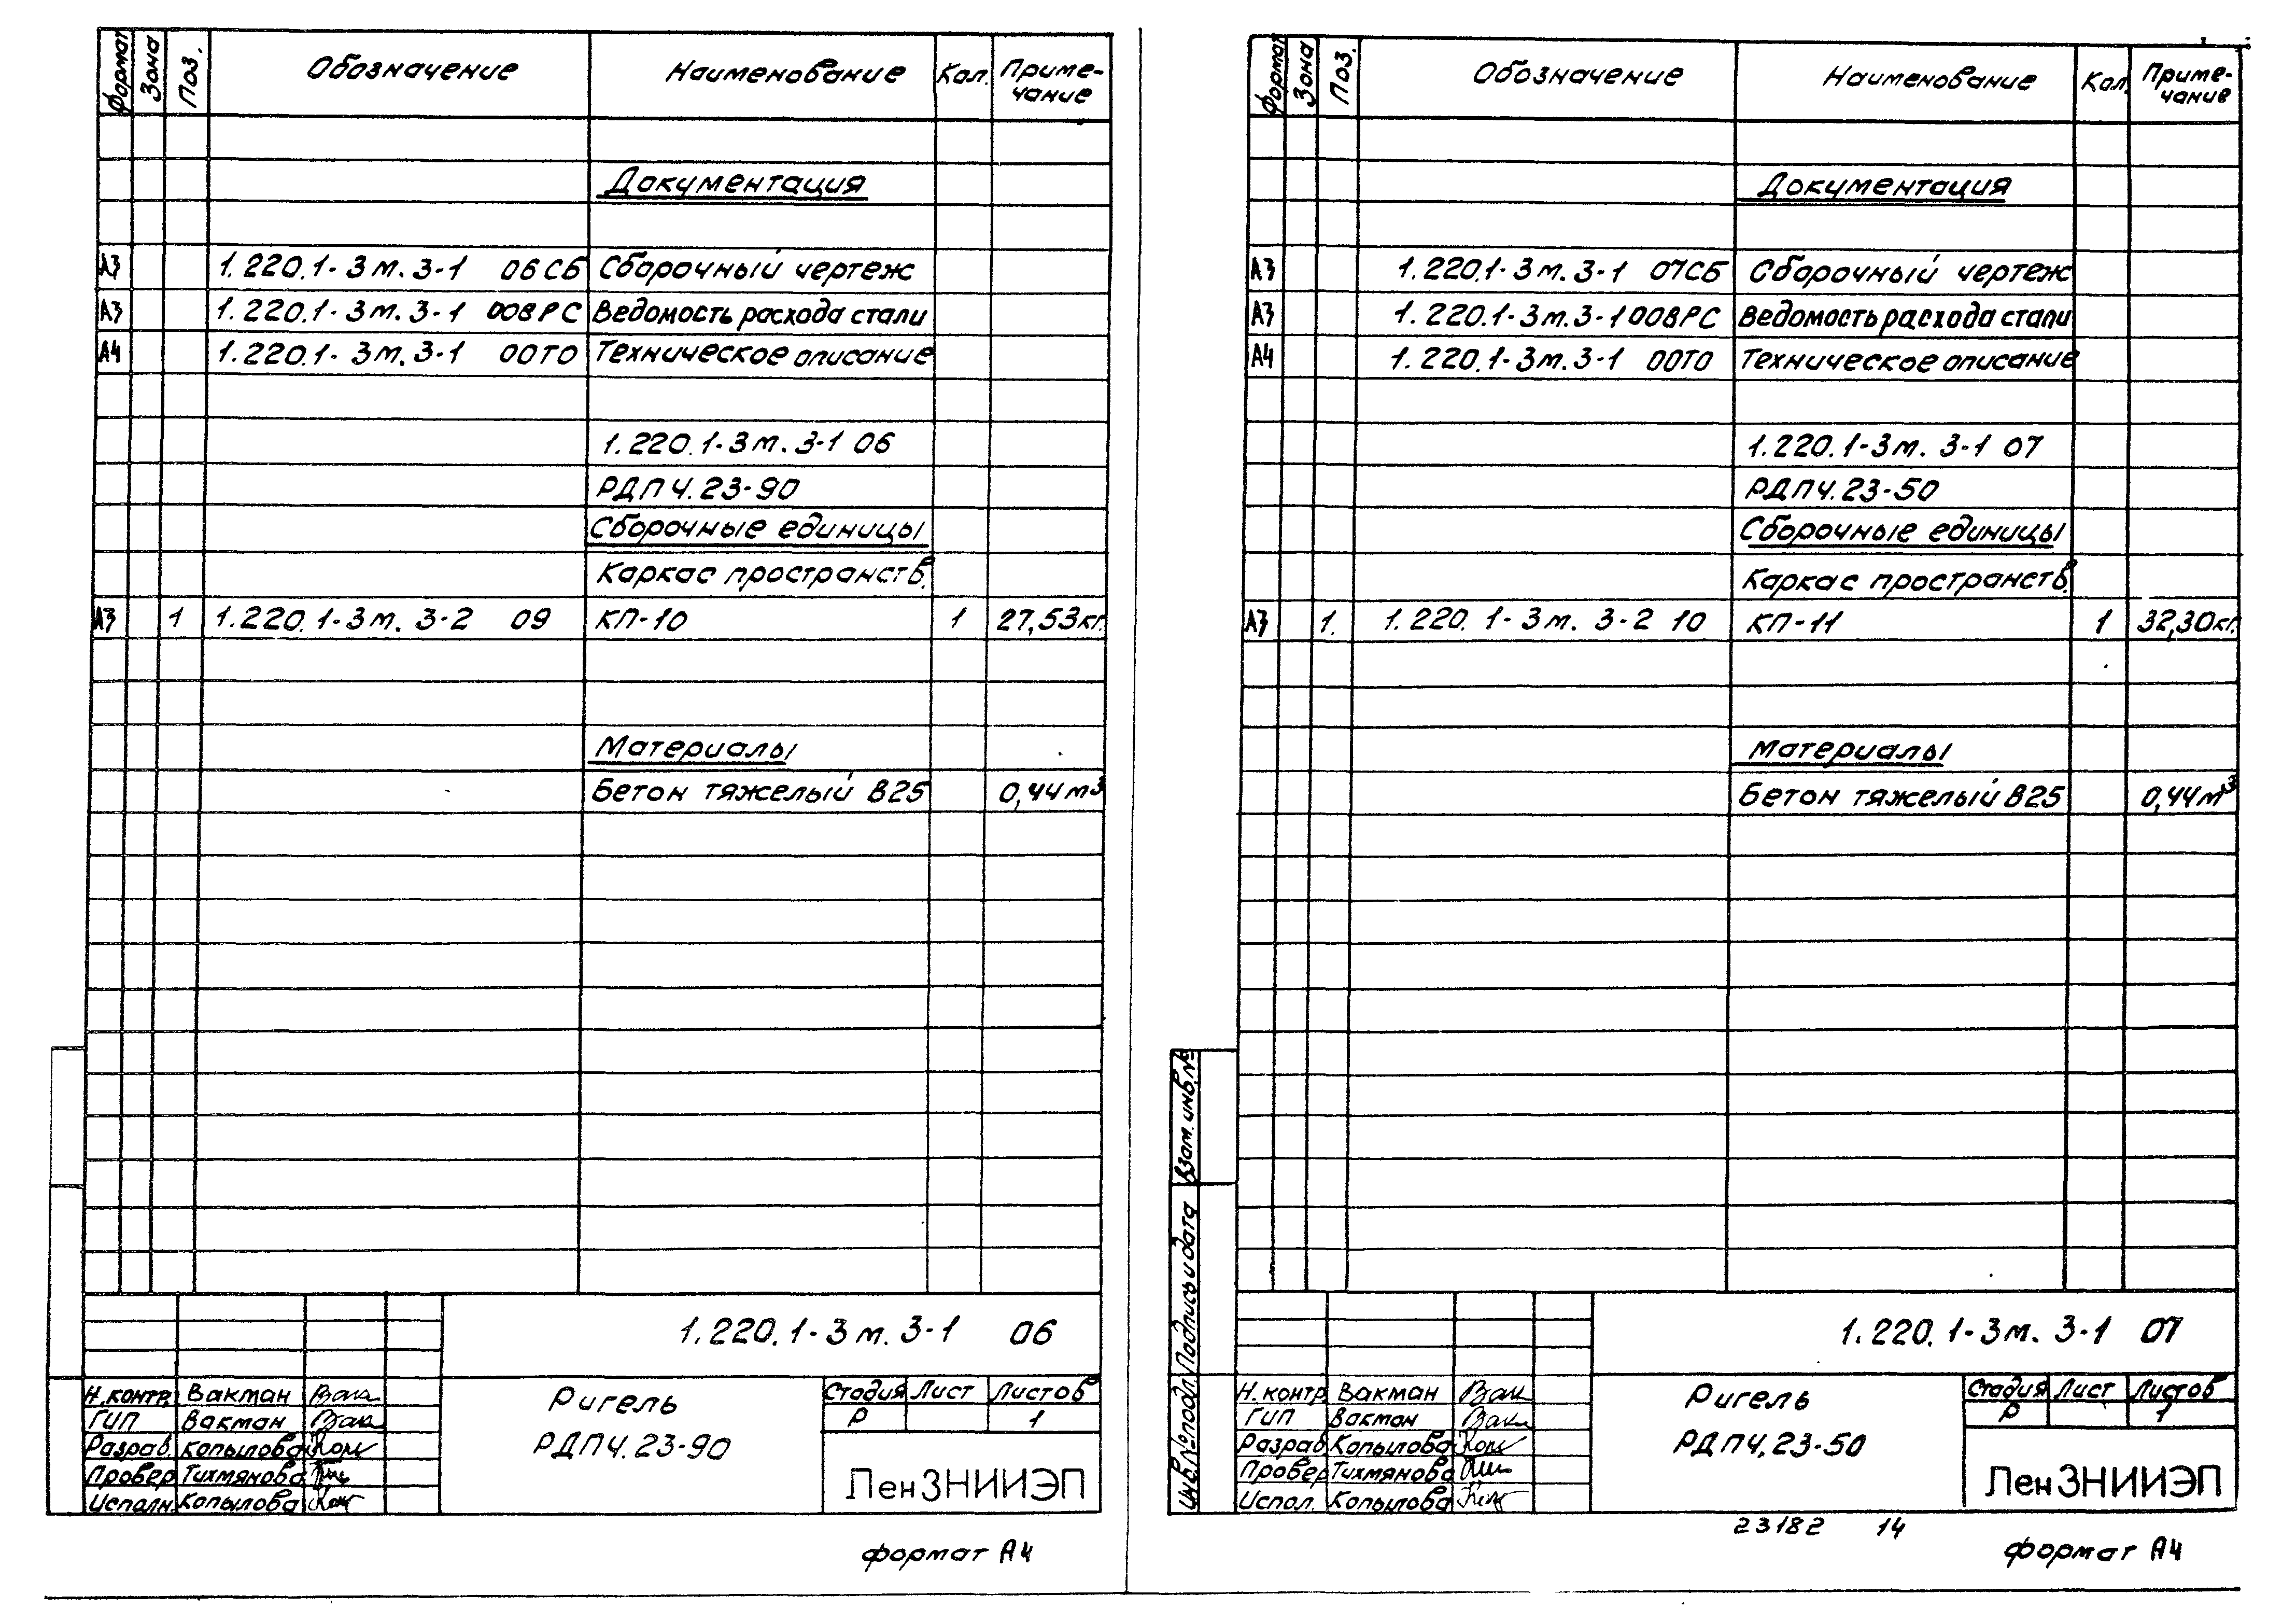 Формат Зона Поз. Обозначение Наименование Кол. Приме-
чание
Документация
А3 1.220.1-3м.3-1 06СБ Сборочный чертеж
А3 1.220.1-3м.3-1 00ВРС Ведомость расхода стали
А4 1.220.1-3м.3-1 00ТО Техническое описание
1.220.1-3м.3-1 06
РДП4.23-90
Сборочные единицы
Каркас пространств.
А3 1 1.220.1-3м.3-2 09 КП-10 1 27,53кг.
Материалы
Бетон тяжелый В25 0,44м³
1.220.1-3м.3-1 06
Н.контр. Вакман
ГИП Вакман
Разраб. Копылова
Провер. Тихмянова
Исполн. Копылова
Ригель
РДП4.23-90
Стадия Лист Листов
Р 1
ЛенЗНИИЭП
формат А4
Формат Зона Поз. Обозначение Наименование Кол. Приме-
чание
Документация
А3 1.220.1-3м.3-1 07СБ Сборочный чертеж
А3 1.220.1-3м.3-1 00ВРС Ведомость расхода стали
А4 1.220.1-3м.3-1 00ТО Техническое описание
1.220.1-3м.3-1 07
РДП4.23-50
Сборочные единицы
Каркас пространств.
А3 1. 1.220.1-3м.3-2 10 КП-11 1 32,30кг.
Материалы
Бетон тяжелый В25 0,44м³
Взам. инв.№
Подпись и дата
Инв.№подл.
1.220.1-3м.3-1 07
Н.контр. Вакман
ГИП Вакман
Разраб. Копылова
Провер. Тихмянова
Испол. Копылова
Ригель
РДП4.23-50
Стадия Лист Листов
Р 1
ЛенЗНИИЭП
23182 14
формат А4